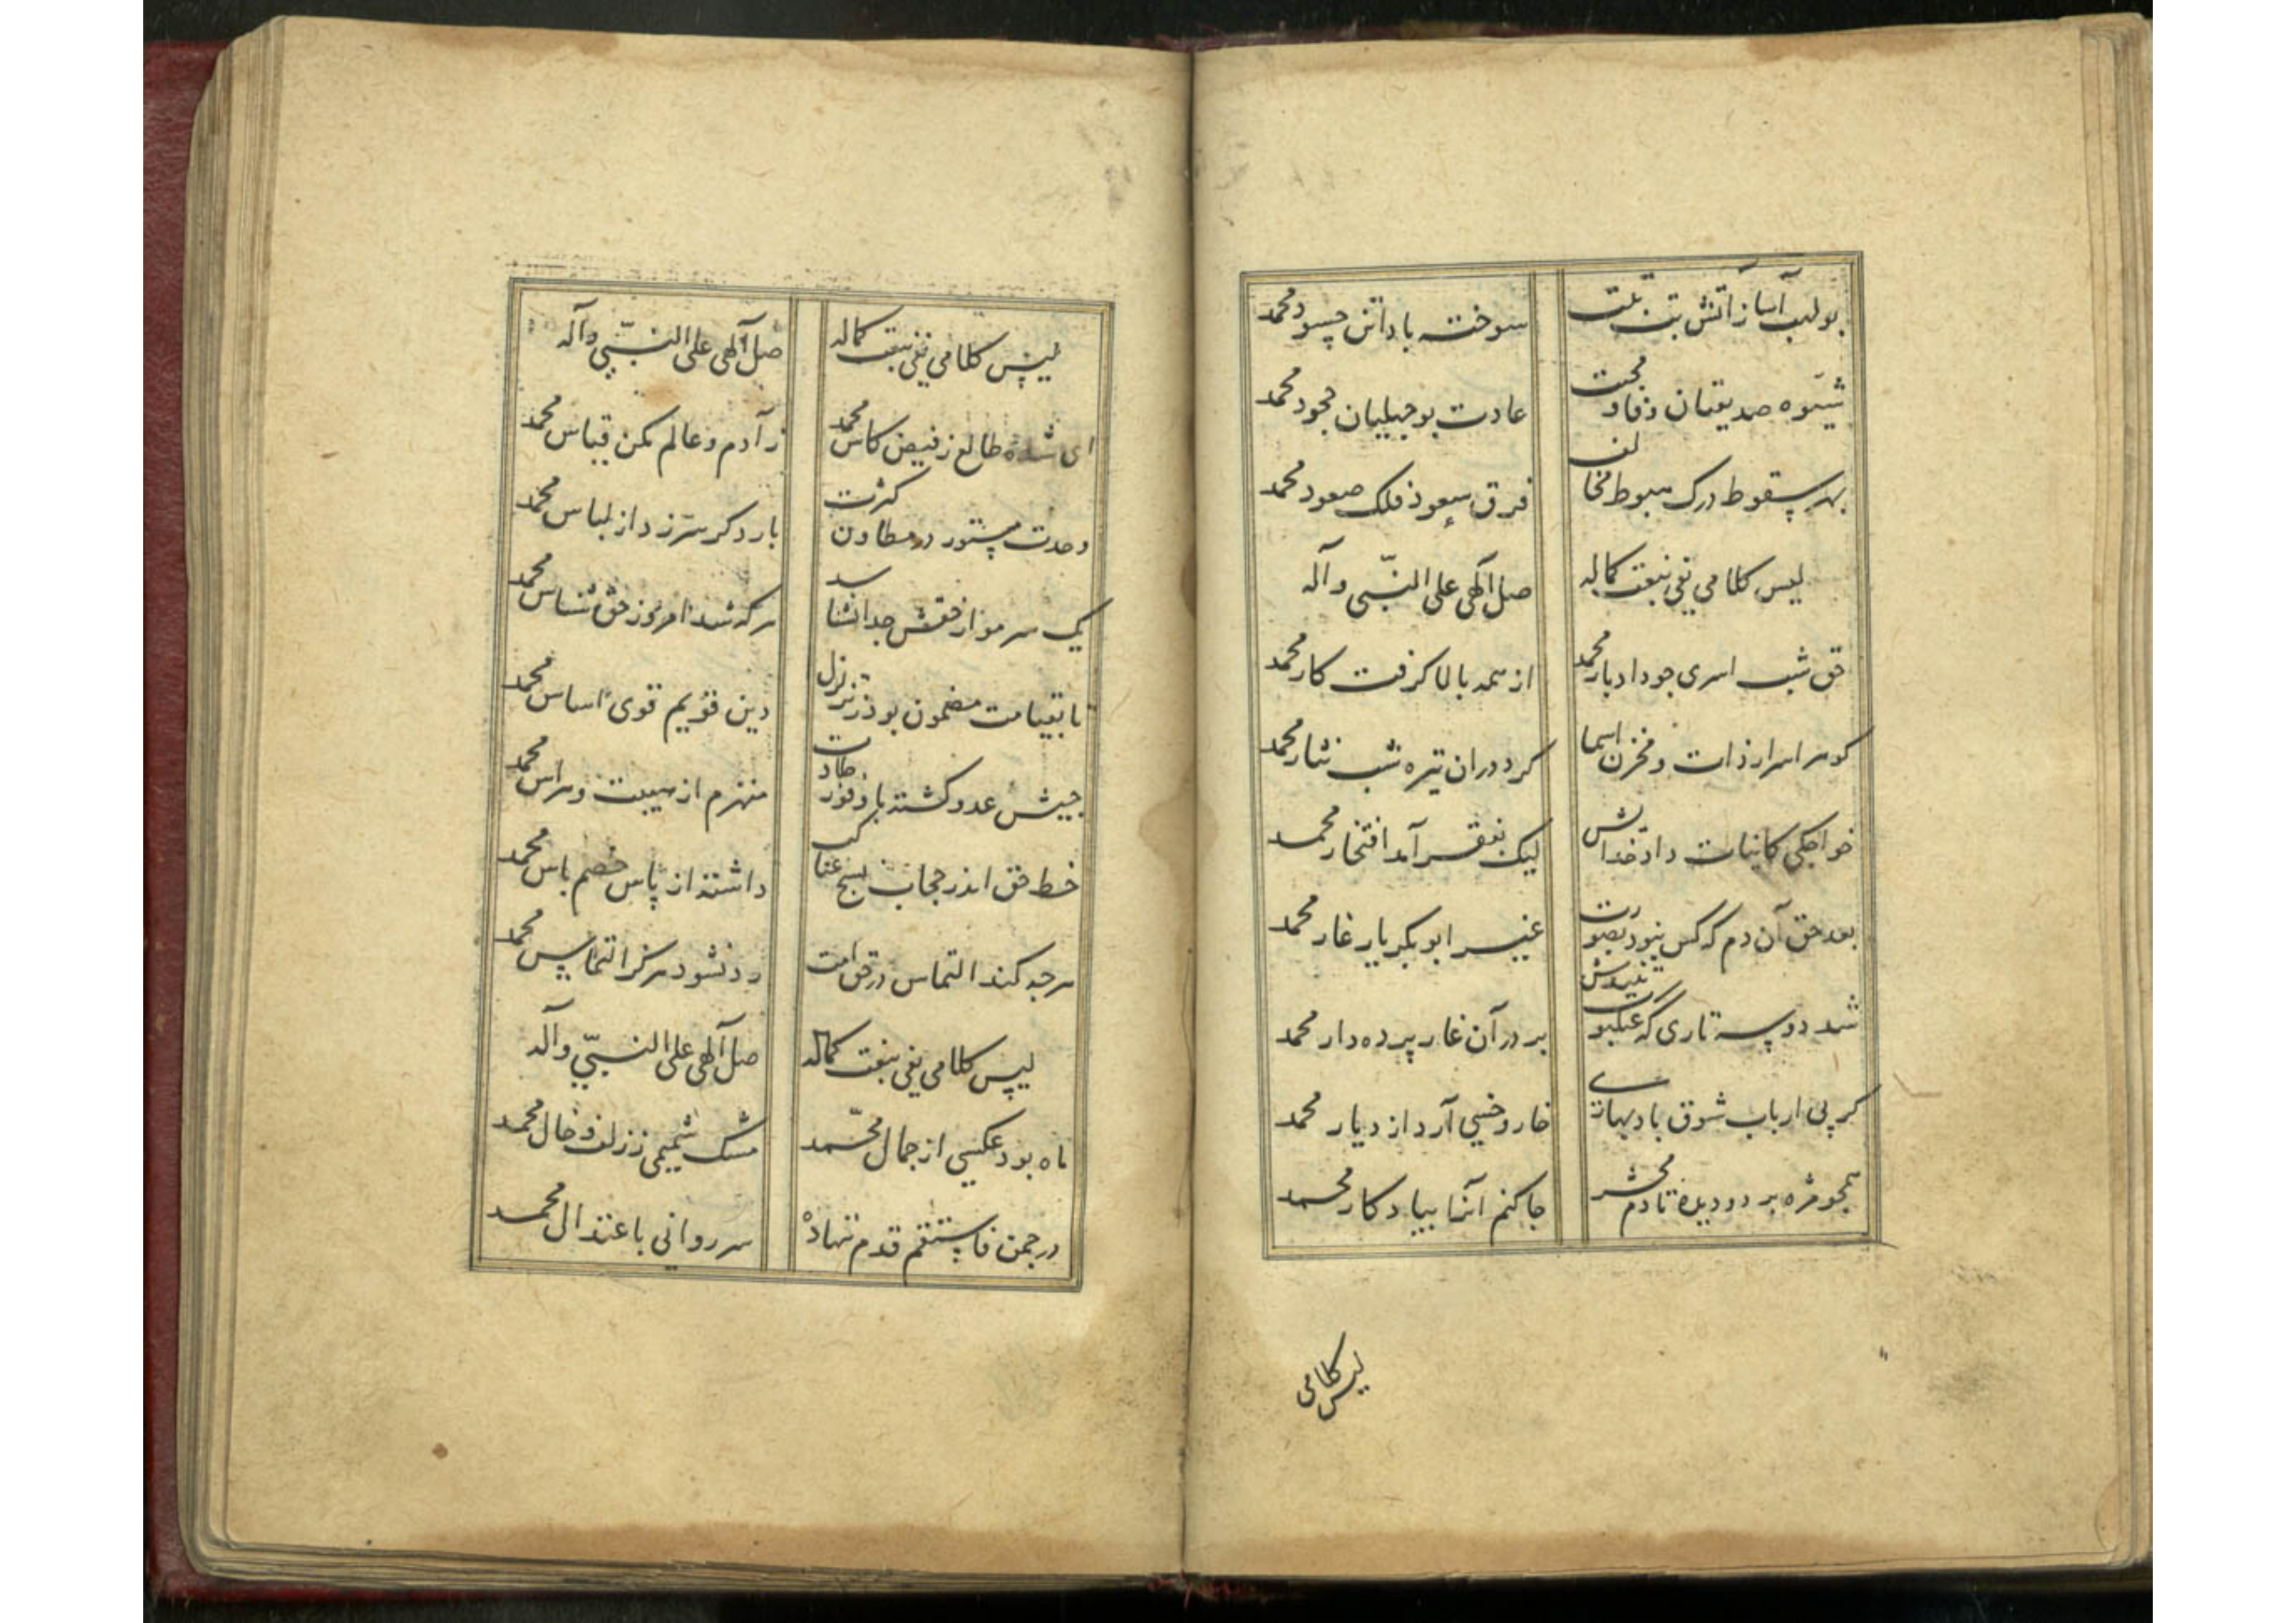 بولهب آسا ز آتش تبت تبت سوخته بادا تن حسود محمد
شیوه صدیقیان وفا و محبت عادت بوجهلیان جحود محمد
بهر سقوط درک هبوط مخالف فرق سعود فلک صعود محمد
لیس کلامی یفی بنعت کماله صل الهی علی النبی و آله
حق شب اسری چو داد بار محمد از همه بالا گرفت کار محمد
گوهر اسرار ذات و مخزن اسما کرد در ان تیره شب نثار محمد
خواجگی کاینات داد خدایش لیک بفقر آمد افتخار محمد
بعد حق آن دم که کس نبود بصورت غیر ابوبکر یار غار محمد
شد دو سه تاری که عنکبوت تنیدش بر در آن غار پرده دار محمد
گر پی ارباب شوق باد بهاری خار و خسی آرد از دیار محمد
همچو مژه بر دو دیده تا دم محشر جا کنم آنرا بیادکار محمد
لیس کلامی
لیس کلامی یفی بنعت کماله صل الهی علی النبی و آله
ای شده طالع ز فیض کاس محمد ز آدم و عالم مکن قیاس محمد
وحدت مستور در بطون کثرت بار دکر سر زد از لباس محمد
یک سر مو از حقش جدا نشناسد هر که شد امروز حق شناس محمد
تا بقیامت مصون بود ز تزلزل دین قویم قوی اساس محمد
جیش عدو کشته با وفور منهزم از هیبت و هراس محمد
خط حق اندر حجاب نسج عناکب داشتند از پاس خصم باس محمد
هرچه کند التماس در حق امت رد نشود هرگز التماس محمد
لیس کلامی یفی بنعت کماله صل الهی علی النبی و آله
ماه بود عکسی از جمال محمد مشک شمیمی ز زلف و خال محمد
در چمن فاستقم قدم ننهاده سر روانی باعتدال محمد